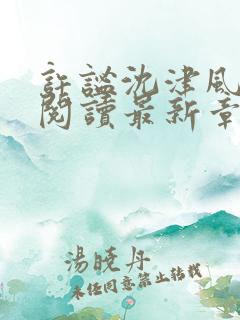 許謐沈津風
閱讀最新章
湯曉丹
未經同意禁止轉載